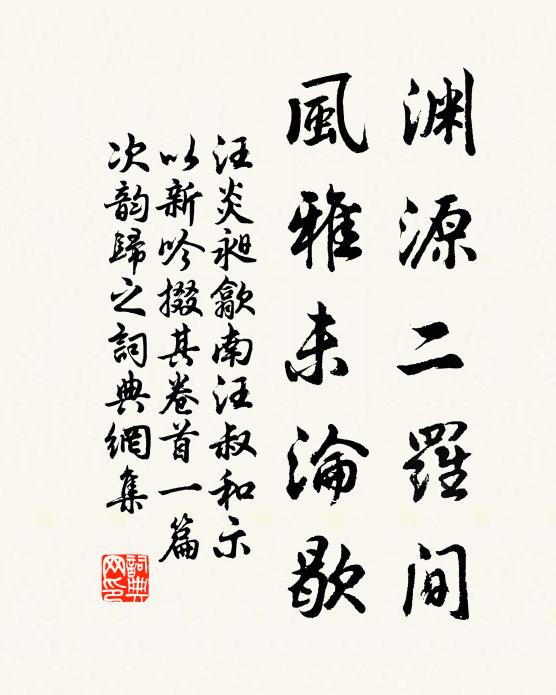 渊源二羅间
風雅未淪歇
汪炎昶歙南汪叔和示
以新吟掇其卷首一篇
次韵歸之詞典網集
詞典网印